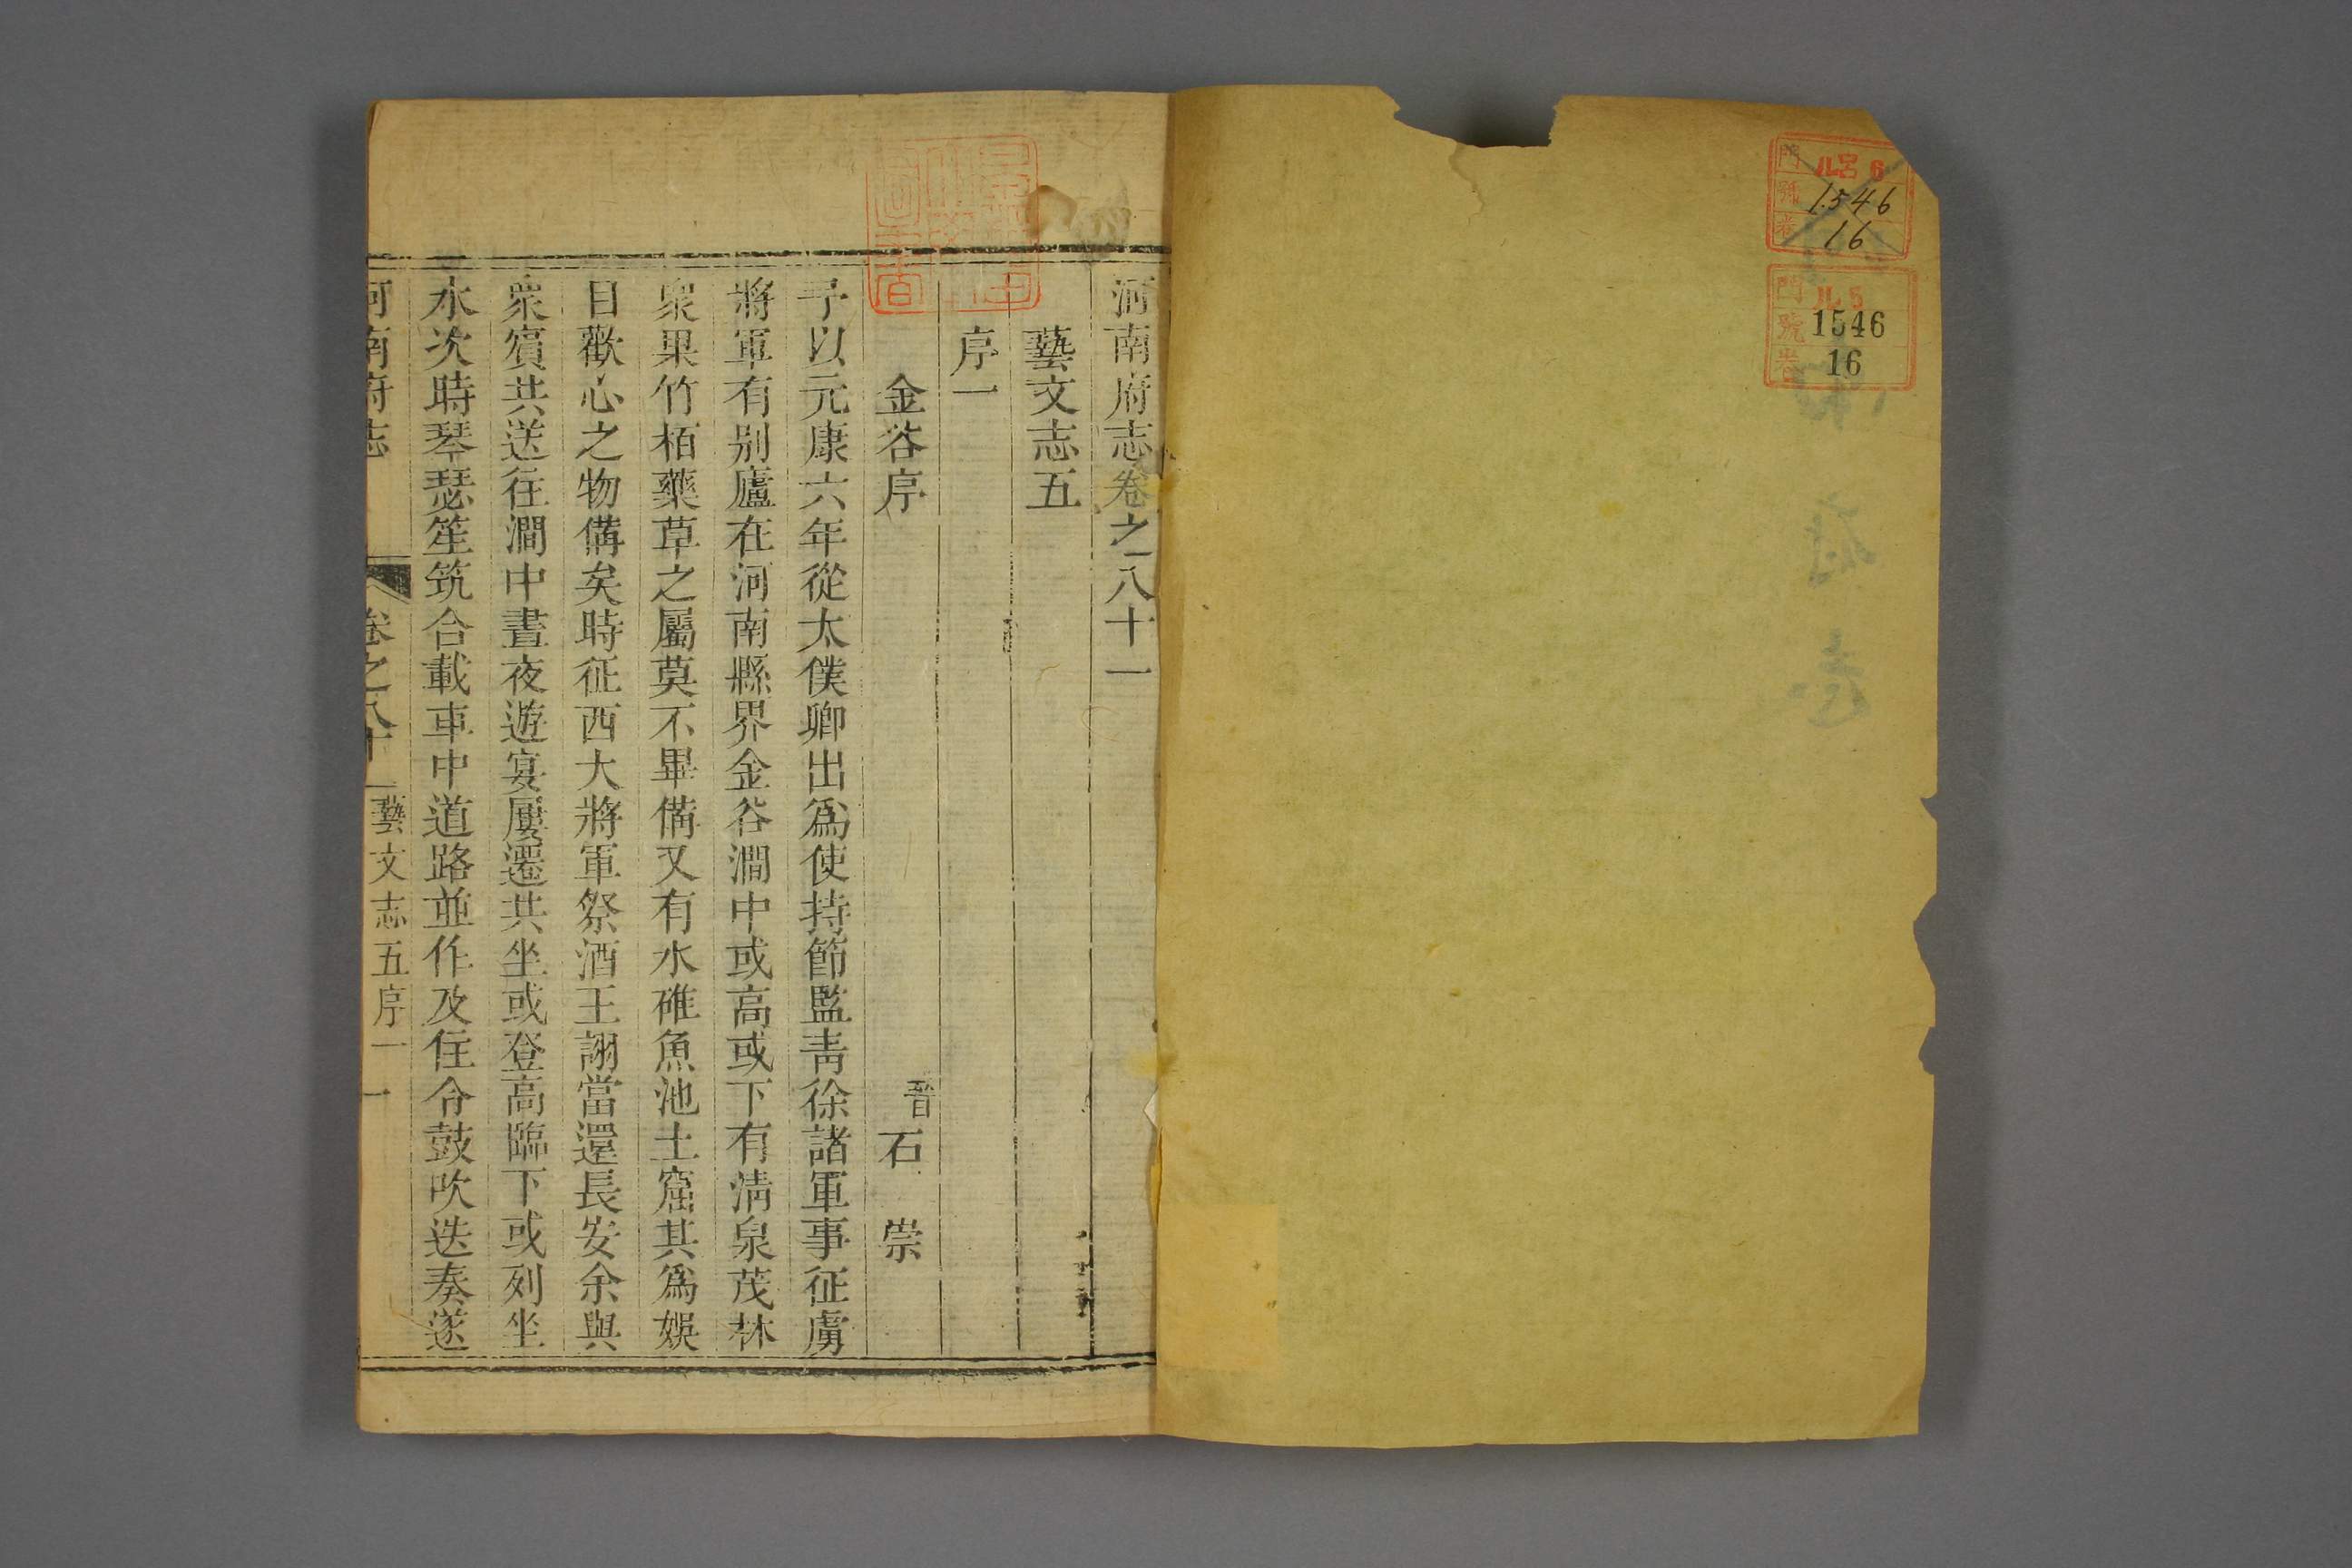 門 ル呂 6
號 1546
卷 16
門 ル 5
號 1546
卷 16
河南府志卷之八十一
藝文志五
序一
金谷序
晉石崇
予以元康六年從太僕卿出爲使持節監靑徐諸軍事征虜
將軍有别廬在河南縣界金谷澗中或高或下有淸泉茂林
衆果竹栢藥草之屬莫不畢備又有水碓魚池土窟其爲娛
目歡心之物備矣時征西大將軍祭酒王詡當還長安余與
衆賓共送往澗中晝夜遊宴屢遷共坐或登高臨下或列坐
水次時琴瑟笙筑合載車中道路並作及住令鼓吹迭奏遂
河南府志 卷之八十一 藝文志五序一 一